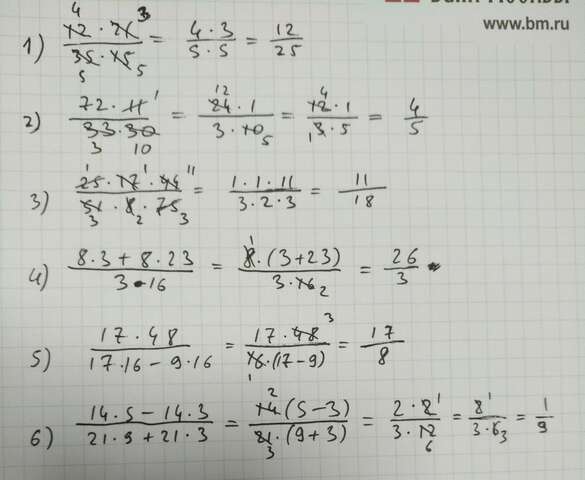 www.bm.ru
1) (12 · 21) / (35 · 15) = (4 · 3) / (5 · 5) = 12/25
2) (72 · 11) / (33 · 30) = (24 · 1) / (3 · 10) = (12 · 1) / (3 · 5) = 4/5
3) (25 · 17 · 44) / (51 · 8 · 75) = (1 · 1 · 11) / (3 · 2 · 3) = 11/18
4) (8 · 3 + 8 · 23) / (3 · 16) = (8 · (3 + 23)) / (3 · 16) = 26/3
5) (17 · 48) / (17 · 16 - 9 · 16) = (17 · 48) / (16 · (17 - 9)) = 17/8
6) (14 · 5 - 14 · 3) / (21 · 9 + 21 · 3) = (14 (5 - 3)) / (21 · (9 + 3)) = (2 · 2) / (3 · 12) = 8/(3 · 6) = 1/9